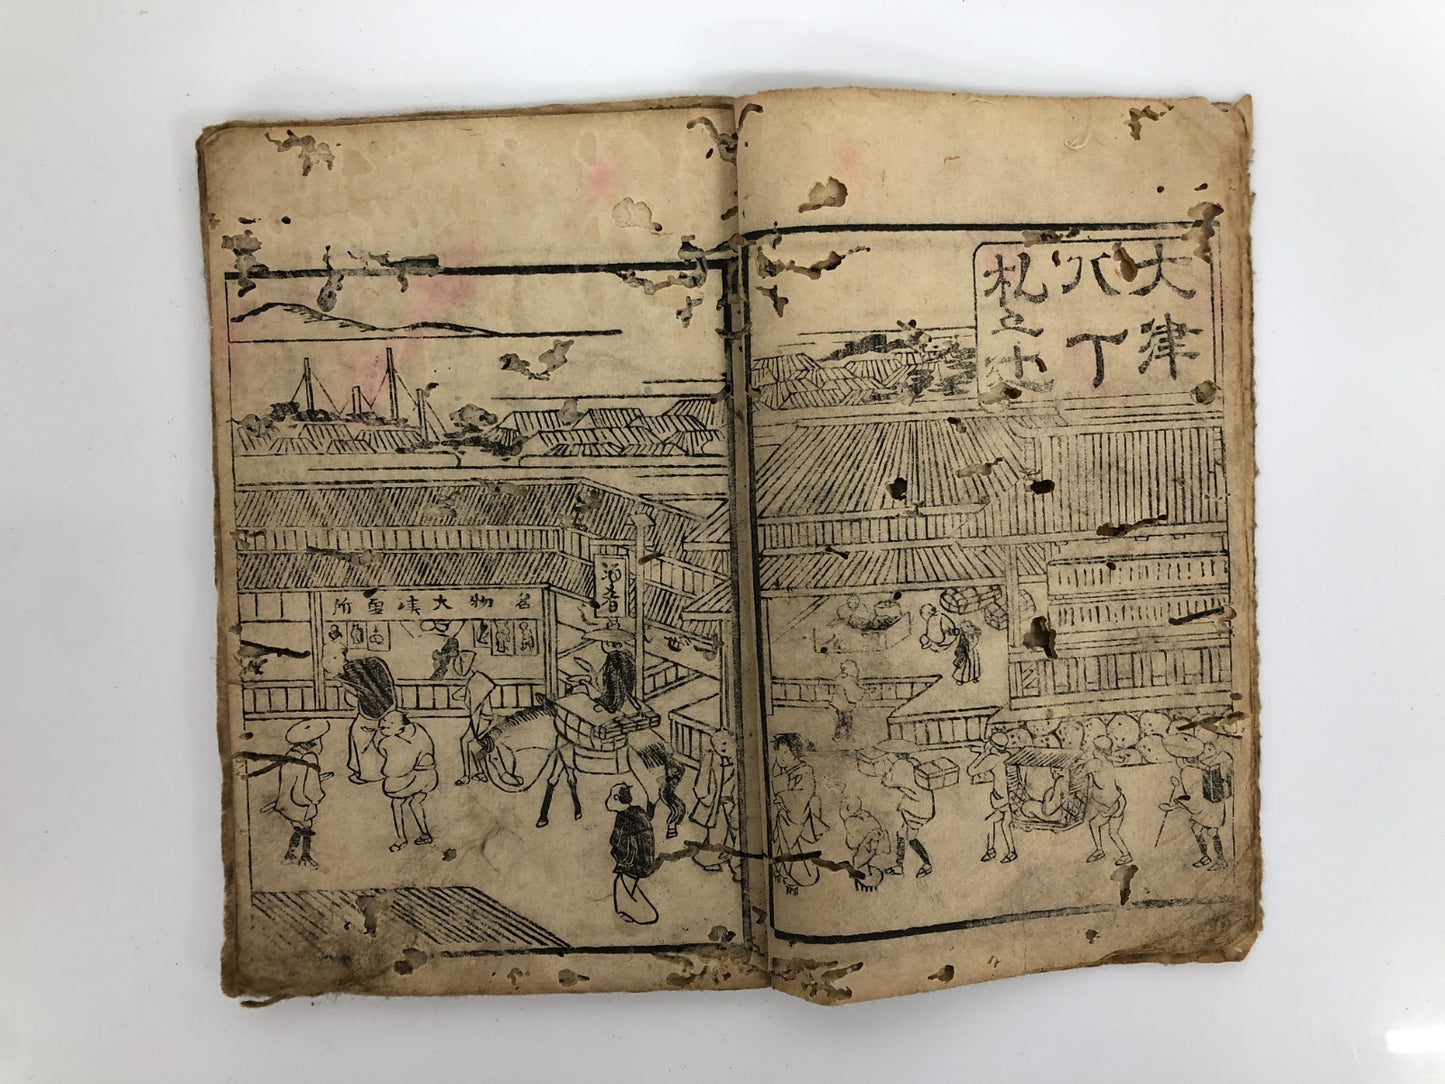 大津
八丁
札之辻
名物大津画所